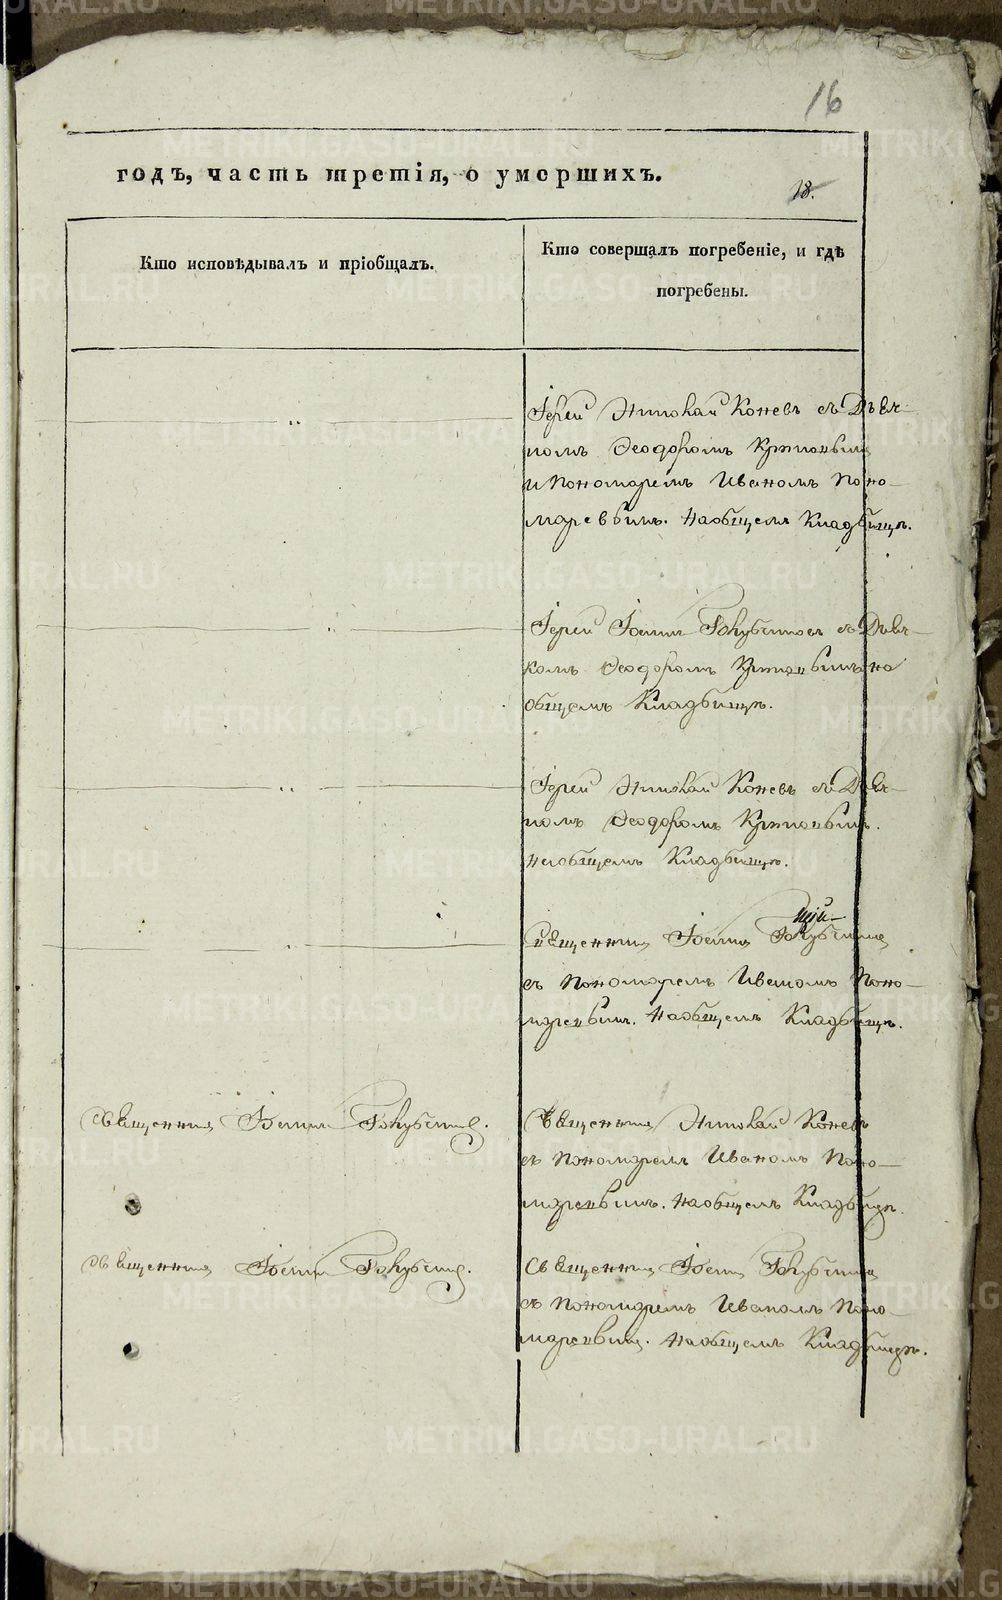 16
годъ, часть третія, о умершихъ.
18.
Кто исповѣдывалъ и пріобщалъ.
Кто совершалъ погребеніе, и гдѣ
погребены.
Іерей Николай Коневъ съ Дьяч-
комъ Ѳеодоромъ
и Пономаремъ Иваномъ Поно-
маревымъ. На общемъ Кладбищѣ.
Іерей Іоаннъ Голубчиковъ съ Дьяч-
комъ Ѳеодоромъ на
общемъ Кладбищѣ.
Іерей Николай Коневъ съ Дьяч-
комъ Ѳеодоромъ
на общемъ Кладбищѣ.
Священникъ Іоаннъ
съ Пономаремъ Иваномъ Поно-
маревымъ. На общемъ Кладбищѣ.
Священникъ Іоаннъ
Священникъ Николай Коневъ
съ Пономаремъ Иваномъ Поно-
маревымъ. На общемъ Кладбищѣ.
Священникъ Іоаннъ
Священникъ Іоаннъ
съ Пономаремъ Иваномъ Поно-
маревымъ. На общемъ Кладбищѣ.
METRIKI.GASO-URAL.RU